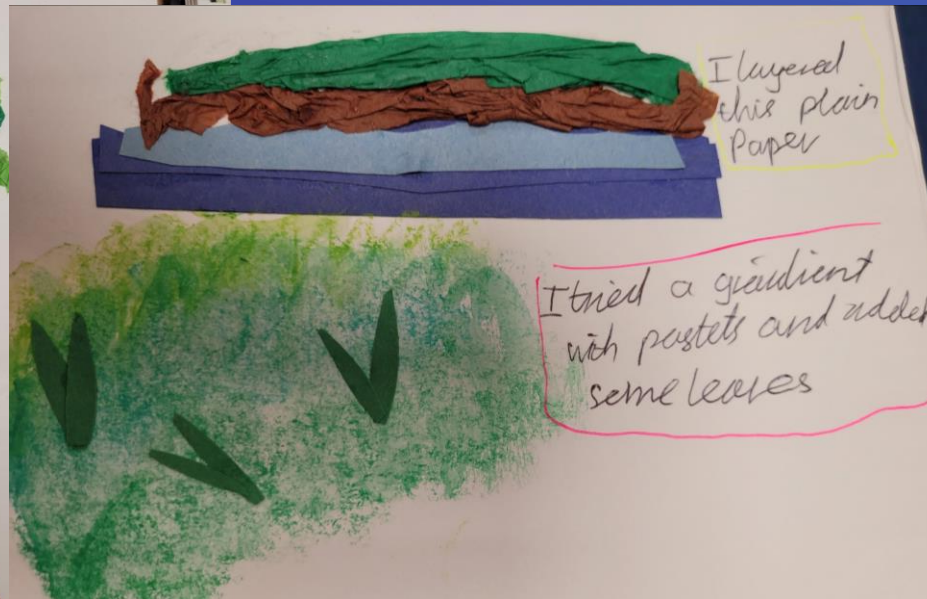 I layered
this plain
Paper
I tried a gradient
with pastels and added
some leaves